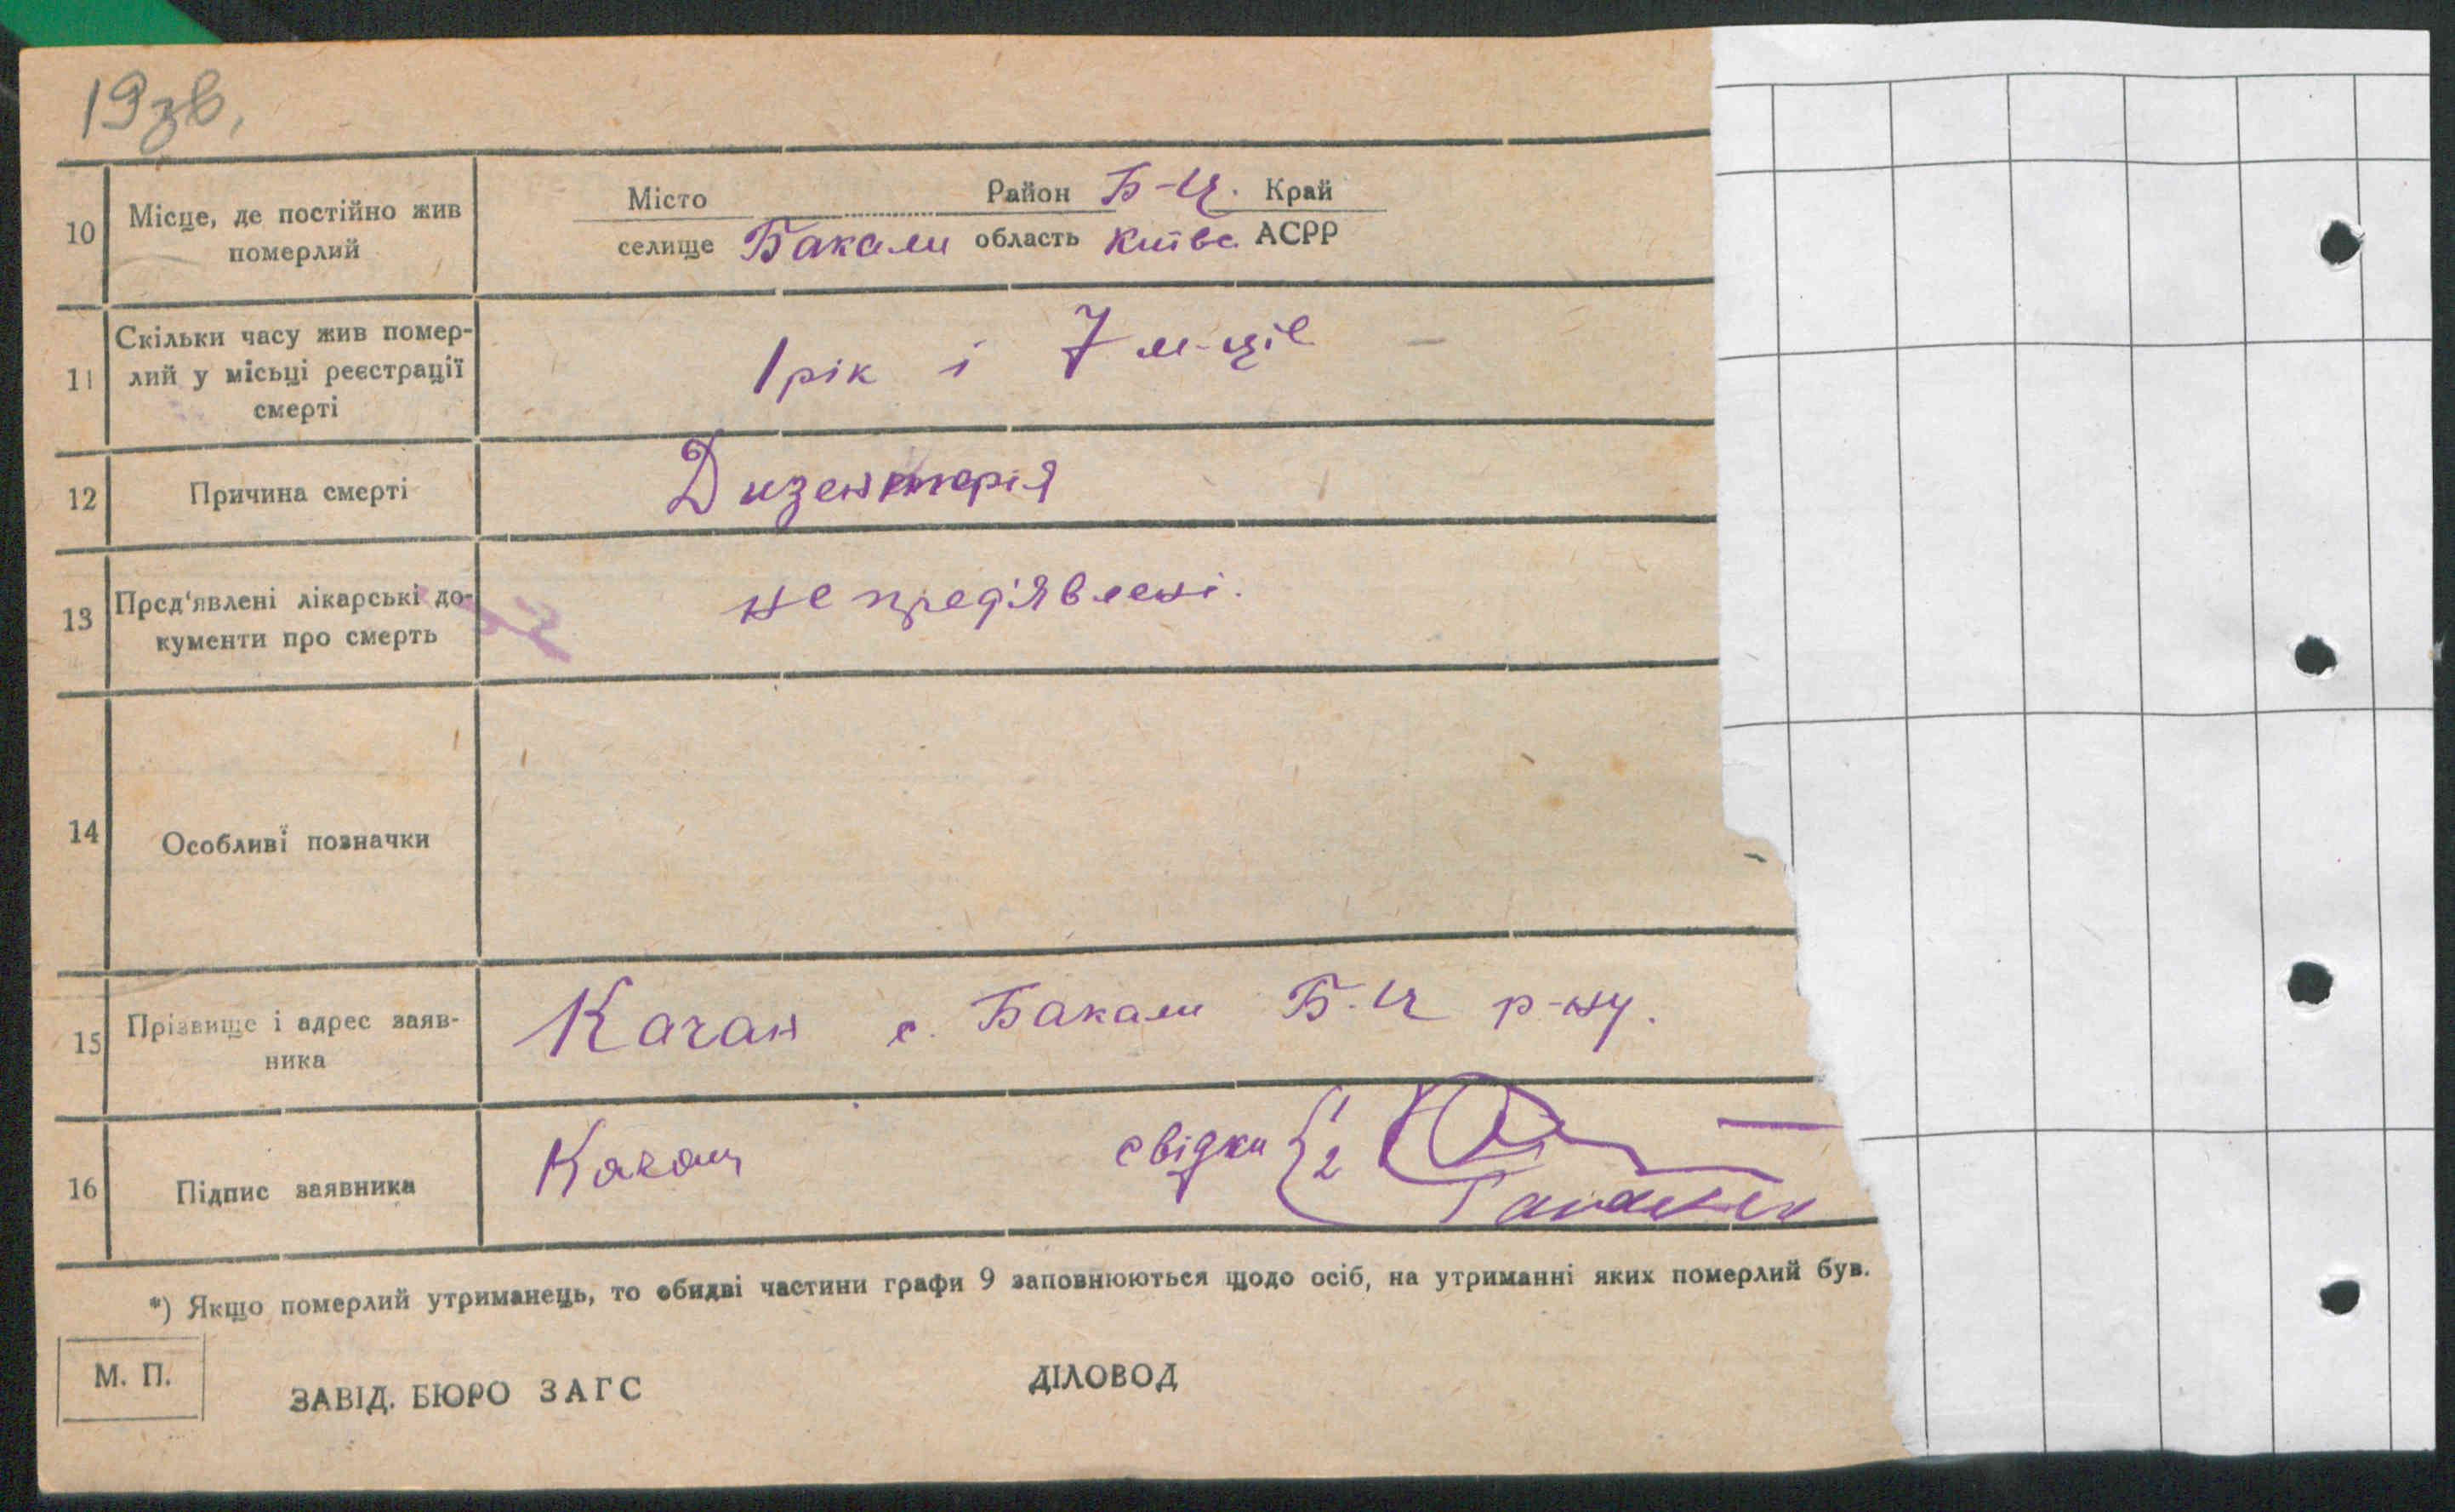 19зв.
10 Місце, де постійно жив померлий
Місто Район Б-Ц. Край
селище Бакали область Київс. АСРР
11 Скільки часу жив помер-
лий у місьці реєстрації
смерті
1 рік і 7 м-ців
12 Причина смерті Дизентерія
13 Пред'явлені лікарські до-
кументи про смерть
не пред'явлені.
14 Особливі позначки
15 Прізвище і адрес заяв-
ника
Качан с. Бакали Б.Ц р-ну.
16 Підпис заявника Качан свідки { 1
2
*) Якщо померлий утриманець, то обидві частини графи 9 заповнюються щодо осіб, на утриманні яких померлий був.
М. П.
ЗАВІД. БЮРО ЗАГС ДІЛОВОД